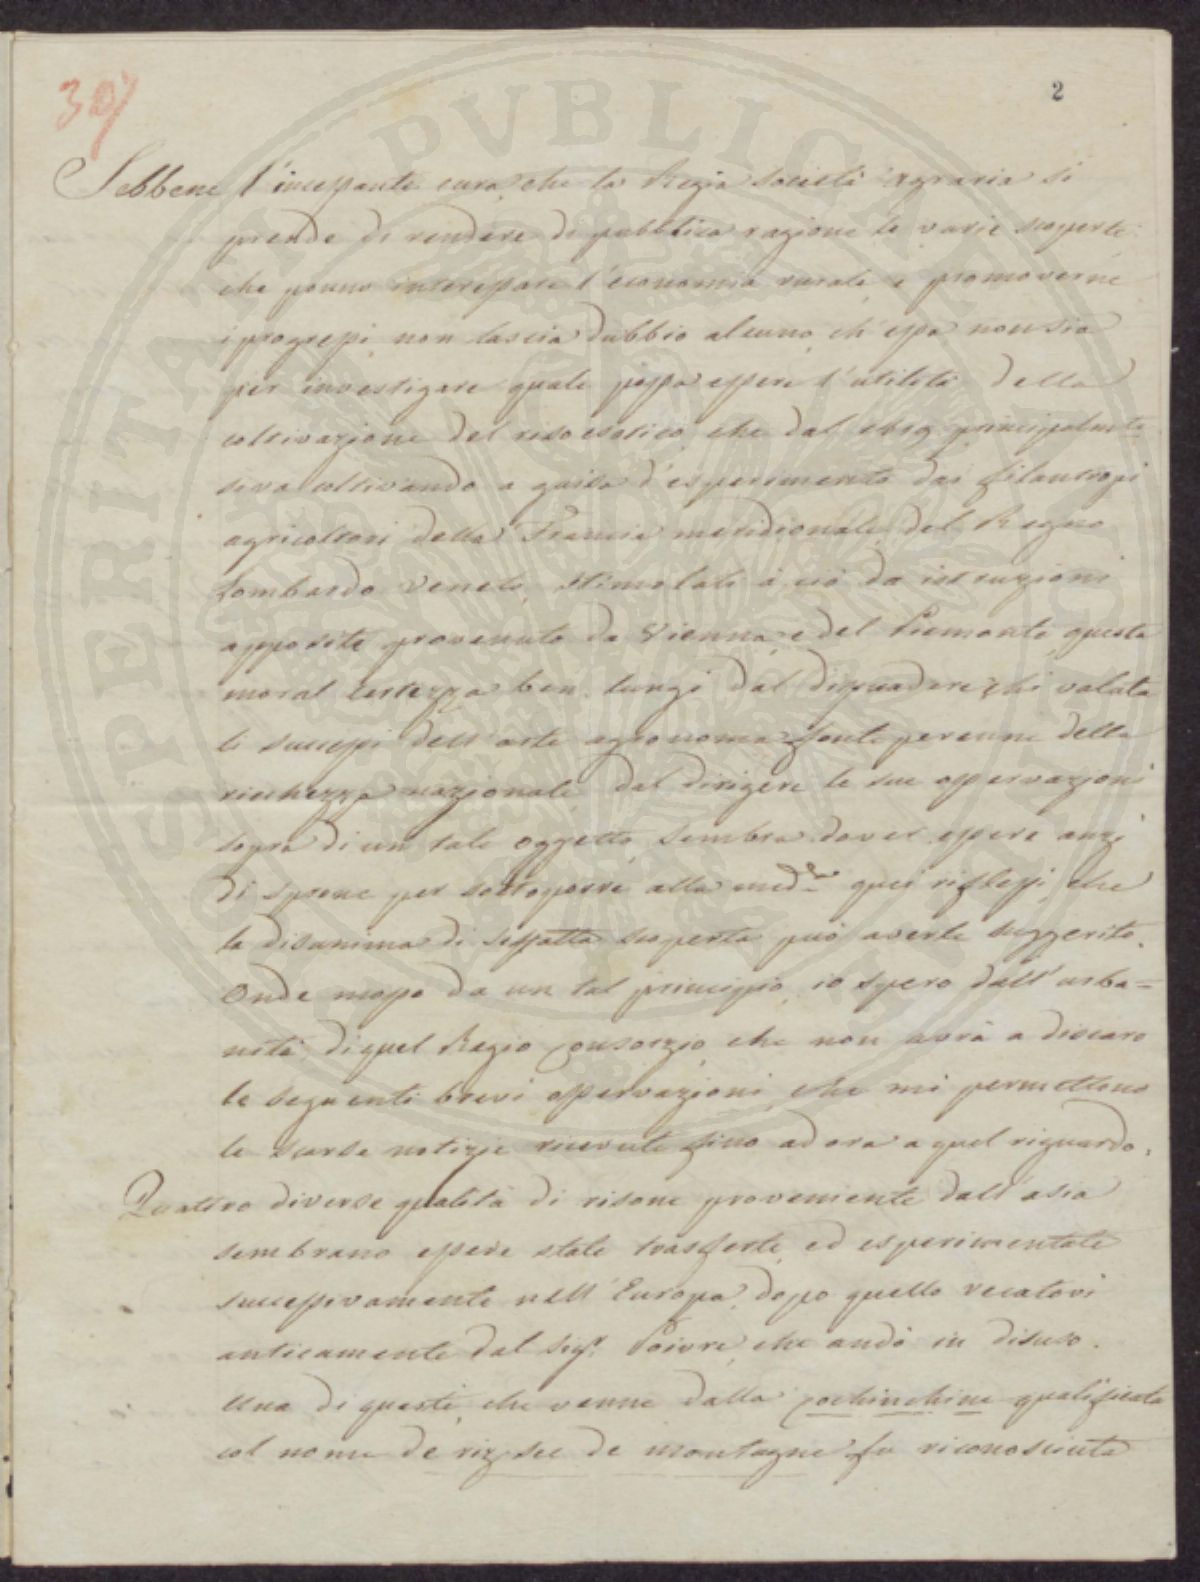 30
2
Sebbene l'incessante cura, che la Regia Società Agraria si
prende di rendere di pubblica ragione le varie scoperte
che ponno interessare l'economia rurale, e promoverne
i progressi, non lascia dubbio alcuno, ch'essa non sia
per investigare quale possa essere l'utilità della
coltivazione del riso esotico, che dal 1829 principalmte
si va coltivando a guisa d'esperimento dai filantropi
agricoltori della Francia meridionale, del Regno
Lombardo Veneto, stimolati a ciò da istruzioni
apposite provenute da Vienna, e del Piemonte, questa
moral certezza ben lungi dal dissuadere chi valuta
li successi dell'arte agronoma fonte perenne della
ricchezza nazionale, dal dirigere le sue osservazioni
sopra di un tale oggetto, sembra dover essere anzi
di sprone per sottoporre alla medma quei riflessi, che
la disamina di siffatta scoperta può averle suggerito.
Onde mosso da un tal principio, io spero dall'urba=
nità di quel Regio Consorzio, che non avrà a discaro
le seguenti brevi osservazioni, che mi permettono
le scarse notizie ricevute fino ad ora a quel riguardo.
Quattro diverse qualità di risone proveniente dall'asia
sembrano essere state trasferte, ed esperimentate
successivamente nell'Europa, dopo quello recatovi
anticamente dal Sigr. Poivre, che andò in disuso.
Una di queste, che venne dalla Cochinchine qualificata
col nome de riz sec de montagne fu riconosciuta
SPERITATI PVBLICAE